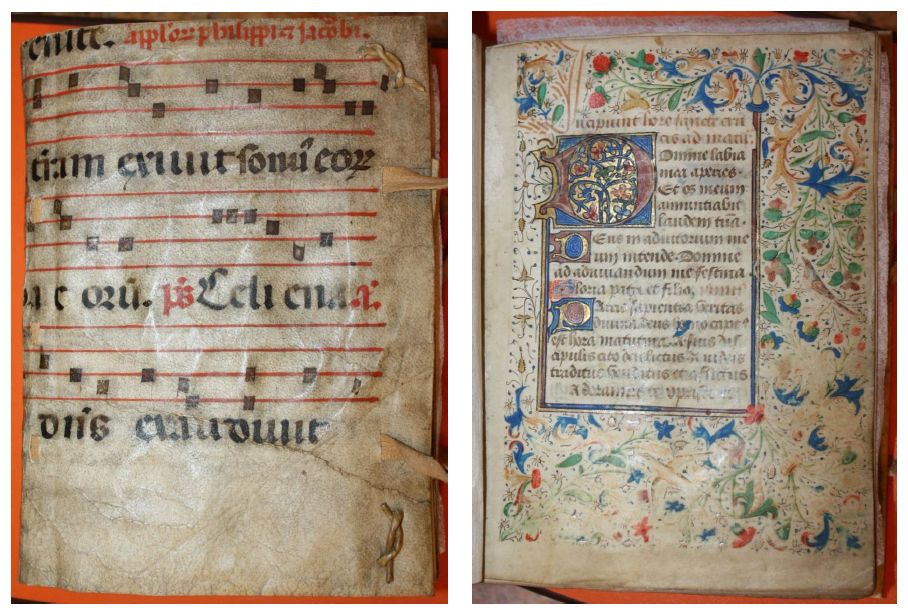 enite. app̄lor philippi ⁊ jacobi.
tram exiuit sonū eoꝝ
orū. ps Celi ena
ncipiunt hore sancte cru
cis ad matu
Domine labia
mea aperies.
Et os meum
annuntiabit
laudem tuā.
Eus in adiutorium me
um intende. Domine
ad adiuuandum me festina.
Gloria patri et filio sicut
Patris sapientia veritas
diuina deus homo capt⁹
est hora matutina. A suis dis
cipulis cito derelictus a iudeis
traditus venditus et afflictus